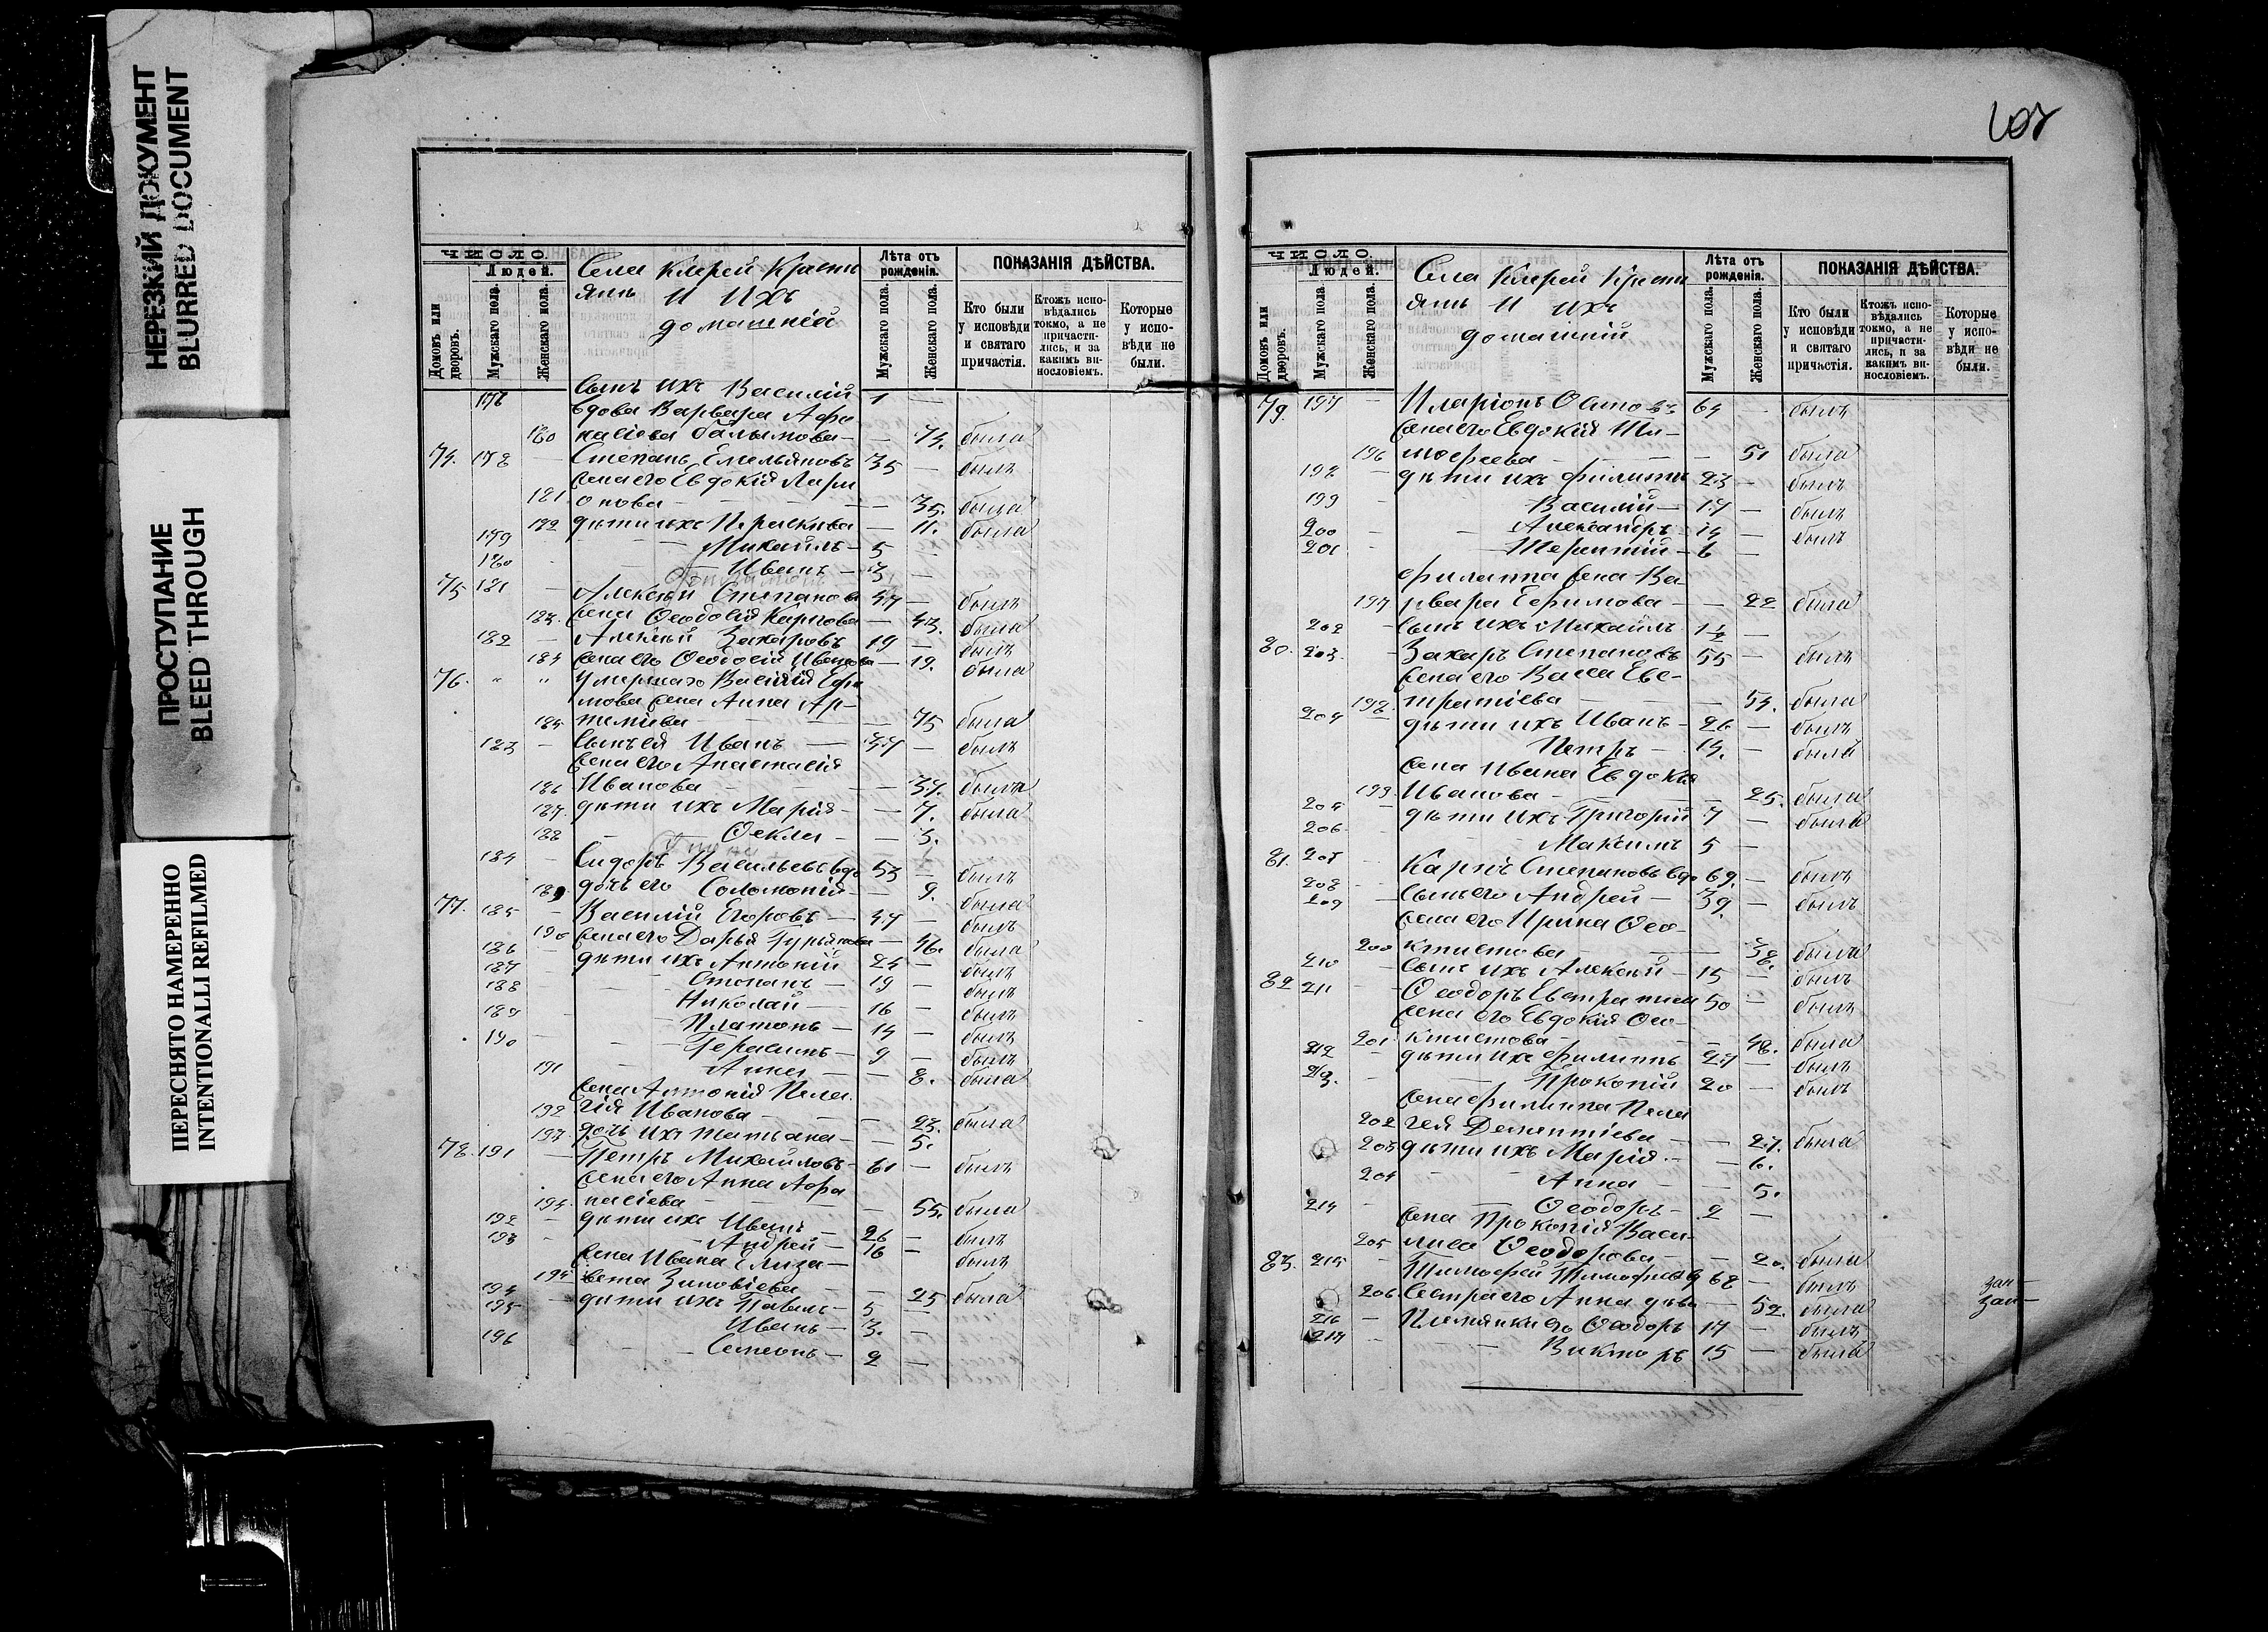 НЕРЕЗКИЙ ДОКУМЕНТ
BLURRED DOCUMENT
ПРОСТУПАНИЕ
BLEED THROUGH
ПЕРЕСНЯТО НАМЕРЕННО
INTENTIONALLI REFILMED
ЧИСЛО.
Людей.
Домовъ или дворовъ.
Мужскаго пола.
Женскаго пола.
Села Киерей Крестьянъ и ихъ домашнія
Лѣта отъ рожденія.
Мужскаго пола.
Женскаго пола.
ПОКАЗАНІЯ ДѢЙСТВА.
Кто были у исповѣди и святаго причастія.
Ктожъ исповѣдались токмо, а не причастились, и за какимъ винословіемъ.
Которые у исповѣди не были.
сынъ ихъ Василій 1 —
Вдова Варвара Афа
180 насіева — — была
74. 178 — Степанъ Емельяновъ 35 — былъ
жена его Евдокія Лари
181 онова — — 35. была
182 дѣти ихъ Параскева — 11. была
179 Михаилъ — 5
180 Иванъ — 3 —
75 181 — Алексѣй Степановъ 47 — былъ
183. жена Ѳеодосія Карпова — 43. была
182 — Алексѣй Захаровъ 19 — былъ
184 жена его Ѳеодосія Иванова — 19. была
76. " " Умершаго Василія Ефи
мова жена Анна Ар-
185 темьева — — 75 была
183 — Сынъ ея Иванъ — 37 — былъ
жена его Анастасія
186 Иванова — — 37. была
187. дѣти ихъ Марія — — 7. была
188 — Ѳекла — — 3.
184 — Сидоръ Васильевъ вдо 53 — былъ
189 дочь его Соломонія — — 9. была
77. 185 — Василій Егоровъ — 47 — былъ
190 жена его Дарья Гурьянова — 46. была
186 — дѣти ихъ Антоній 24 — былъ
187 — Степанъ — 19 — былъ
188 — Николай — 16 — былъ
189 — Платонъ — 14 — былъ
190 — Герасимъ — 9 — былъ
191 — Анна — — 8. была
жена Антонія Пела
192 гія Иванова — — 23. была
193. дочь ихъ Татьяна — — 5.
78. 191 — Петръ Михайловъ — 61 — былъ
жена его Анна Афа
194. насіева — — 55. была
192 — дѣти ихъ Иванъ — 26 — былъ
193 — Андрей — 16 — былъ
жена Ивана Елиза—
195 вета Зиновіева — — 25 была
194 — дѣти ихъ Павелъ — 5 —
195 Иванъ — 3. —
196 — Семеонъ — 2 —
ЧИСЛО.
Людей.
Домовъ или дворовъ.
Мужскаго пола
Женскаго пола.
Села Киерей Крестьянъ и ихъ домашній
Лѣта отъ рожденія.
Мужскаго пола.
Женскаго пола.
ПОКАЗАНІЯ ДѢЙСТВА.
Кто были у исповѣди и святаго причастія.
Ктожъ исповѣдались токмо, а не причастились, и за какимъ винословіемъ.
Которые у исповѣди не были.
79. 197 — Иларіонъ Осиповъ 64 — былъ
жена его Евдокія Ти—
196 моѳеева — — 51 была
198 — дѣти ихъ Филиппъ 23 — былъ
199 — Василій — 17 — былъ
200 — Александръ 14 — былъ
201 — Терентій — 6 —
Филиппа жена Ва-
197 рвара Ефимова — — 22 была
202 — сынъ ихъ Михаилъ 1½ —
80. 203. — Захаръ Степановъ 55 — былъ
жена его Васса Евс-
198. тратіева — — 54. была
204 — дѣти ихъ Иванъ — 26 — былъ
Петръ — 14. — былъ
жена Ивана Евдокія
199. Иванова — — 25. была
205 — дѣти ихъ Григорій 7 — былъ
206. Максимъ 5 —
81. 207 Карпъ Степановъ вдо 69. — былъ
208 — сынъ его Андрей — 39 — былъ
209 жена его Ирина Ѳео-
200 ктистова — — 38. была
210 — сынъ ихъ Алексѣй — 15 — былъ
82 211 — Ѳеодоръ Евстратіевъ 50 — былъ
жена его Евдокія Ѳео—
201 ктистова — — 48. была
212 — дѣти ихъ Филиппъ 27 — былъ
213. — Прокопій 20 — былъ
жена Филиппа Пела
202 гея Дементіева — — 27. была
203 дѣти ихъ Марія — — 6.
204 — Анна — — 5.
214 — Ѳеодоръ — 2 —
жена Прокопія Васи-
205 лиса Ѳеодорова — — 20. была
83. 215 — Тимоѳей Тимоѳеевъ 68 — былъ
206 Сестра его Анна дѣва — 52. была
216 — Племянники его Ѳеодоръ 17 — былъ
217 — Викторъ 15 — былъ